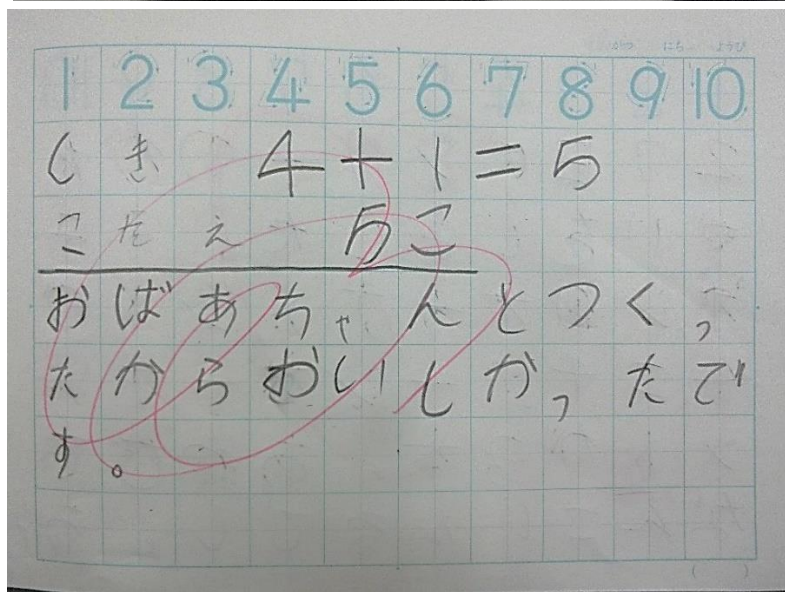 がつ にち ようび
1 2 3 4 5 6 7 8 9 10
しき 4+1=5
こたえ 5こ
おばあちゃんとつくっ
たからおいしかったで
す。
( )